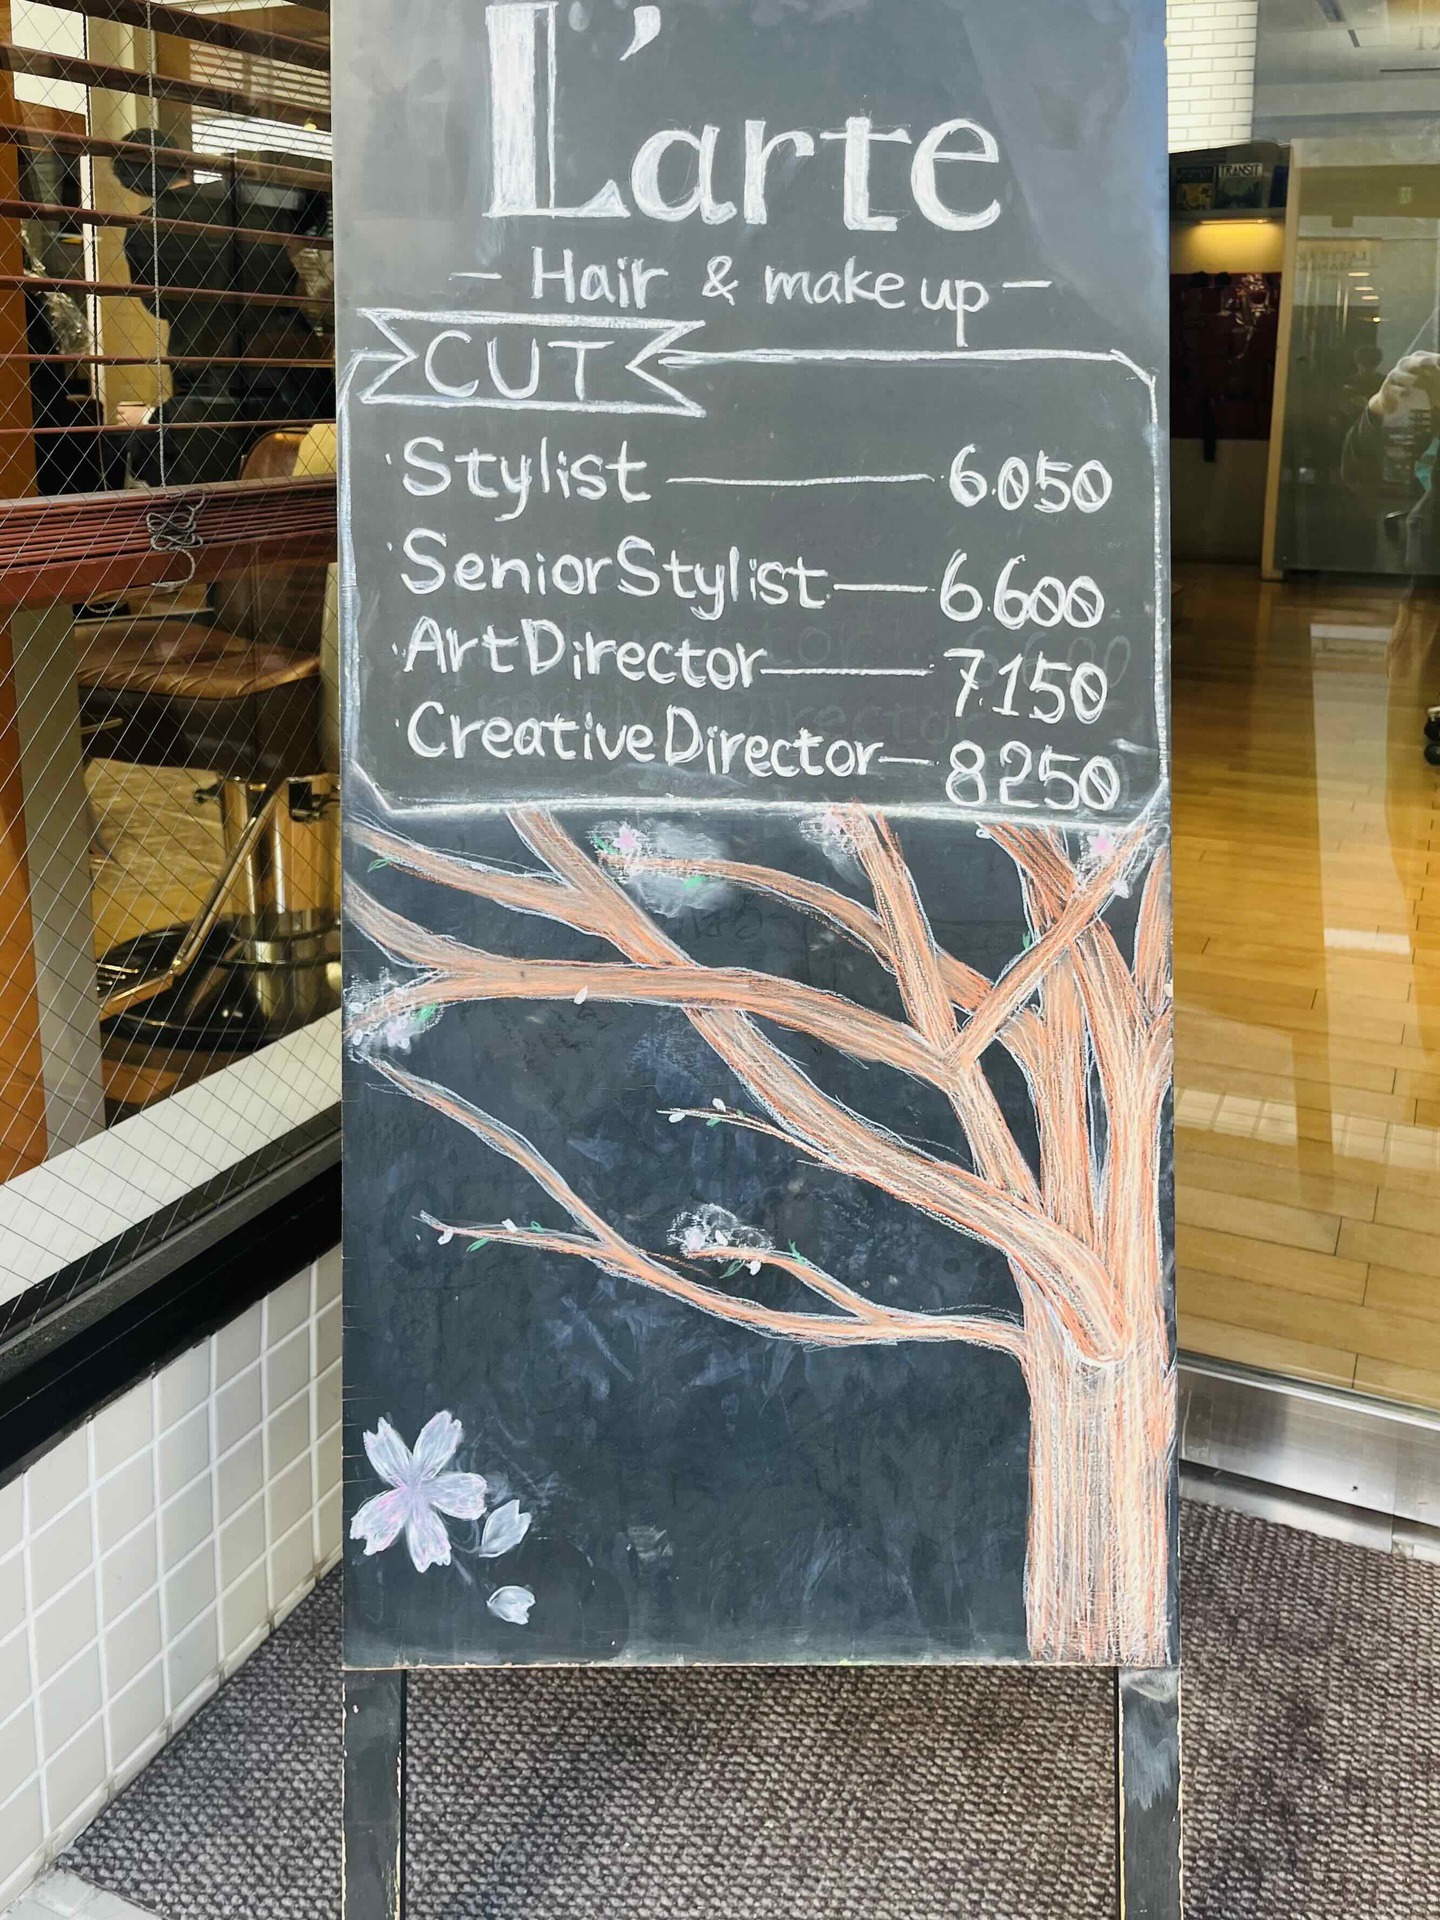 L'arte
— Hair & make up —
CUT
·Stylist — 6.050
·Senior Stylist — 6.600
·Art Director — 7.150
·Creative Director — 8250
TRANSIT